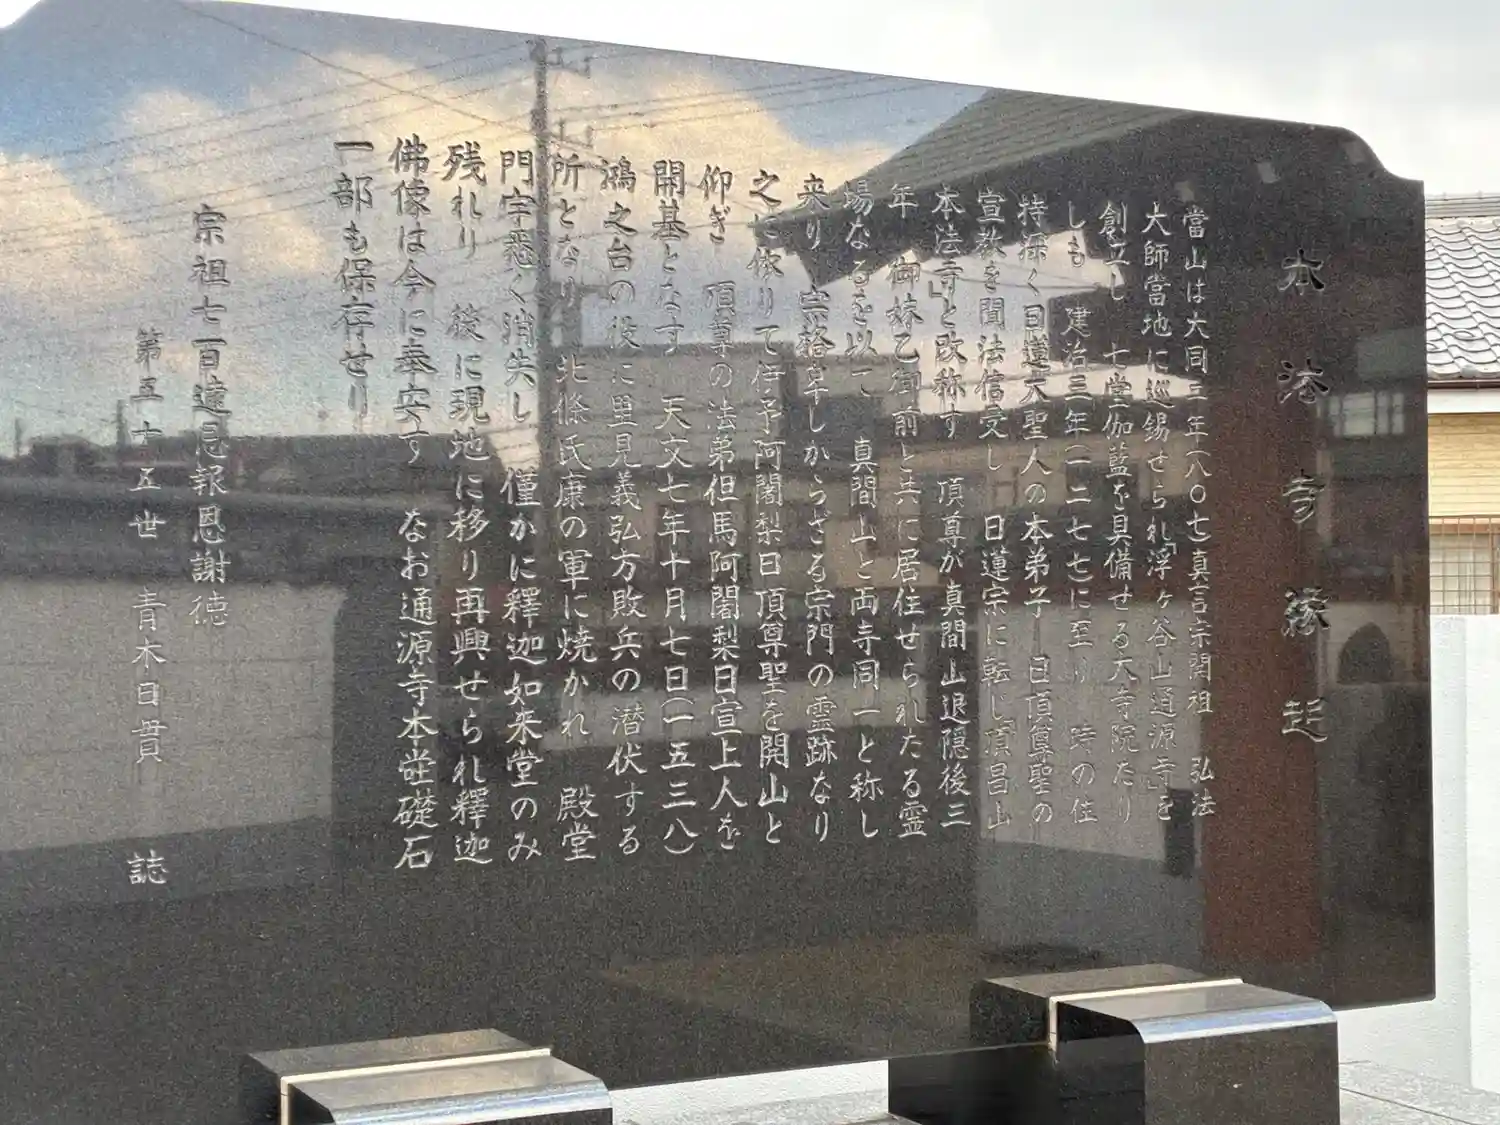 本法寺縁起
當山は大同二年(八〇七)真言宗開祖 弘法
大師當地に巡錫せられ「浮ヶ谷山通源寺」を
創立し 七堂伽藍を具備せる大寺院たり
しも 建治三年(一二七七)に至り 時の住
持深く日蓮大聖人の本弟子 日頂尊聖の
宣教を聞法信受し 日蓮宗に転じ「頂昌山
本法寺」と改称す 頂尊が真間山退隠後三
年 御妹乙御前と共に居住せられたる霊
場なるを以て 真間山と両寺同一と称し
来り 宗格卑しからざる宗門の霊跡なり
之に依りて伊予阿闍梨日頂尊聖を開山と
仰ぎ 頂尊の法弟但馬阿闍梨日宣上人を
開基となす 天文七年十月七日(一五三八)
鴻之台の役に里見義弘方敗兵の潜伏する
所となり 北條氏康の軍に焼かれ 殿堂
門宇悉く消失し 僅かに釋迦如来堂のみ
残れり 後に現地に移り再興せられ釋迦
佛像は今に奉安す なお通源寺本堂礎石
一部も保存せり
宗祖七百遠忌報恩謝徳
第五十五世 青木日貫 誌